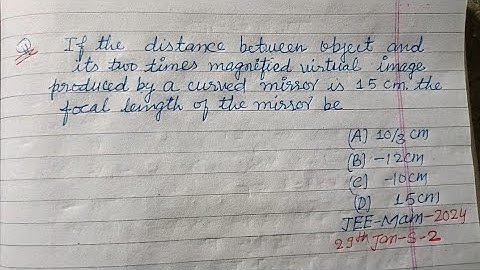 Q. If the distance between object and
its two times magnified virtual image
produced by a curved mirror is 15 cm. the
focal length of the mirror be
(A) 10/3 cm
(B) -12cm
(C) -10cm
(D) 15cm
JEE-Mam-2024
29th Jan-S-2